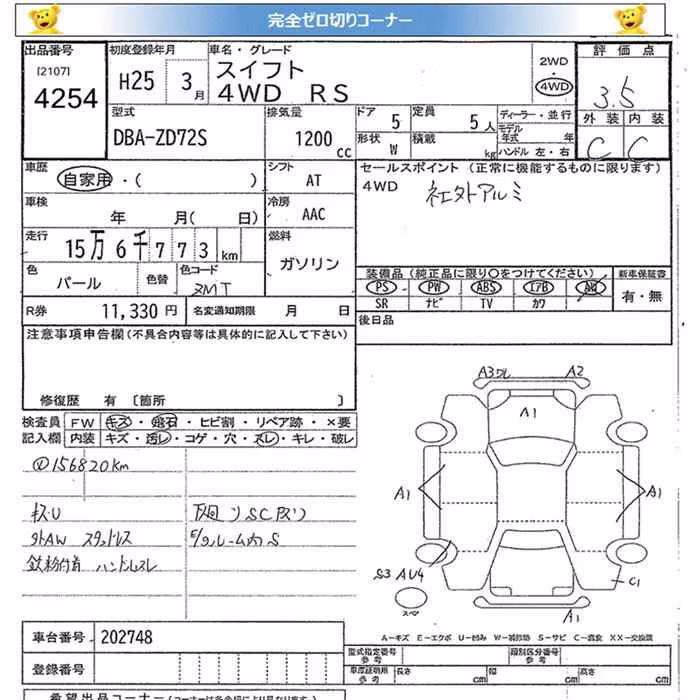 完全ゼロ切りコーナー
出品番号
[2107]
4254
初度登録年月
H25 3月
車名・グレード
スイフト
4WD RS
2WD
4WD
評価点
3.5
外装 内装
C C
型式
DBA-ZD72S
排気量
1200 cc
ドア
5
定員
5人
形状
W
積載
kg
ディーラー・並行
モデル年式 年
ハンドル 左・右
車歴
自家用・( )
シフト
AT
車検
年 月( 日)
冷房
AAC
走行
15万6千773km
燃料
ガソリン
色
パール
色替
色コード
ZMT
R券
11,330円
名変通知期限 月 日
セールスポイント (正常に機能するものに限ります)
4WD
社外アルミ
装備品(純正品に限り○をつけてください)
PS PW ABS エアB AW
SR ナビ TV カワ
新車保証書
有・無
後日品
注意事項申告欄(不具合内容等は具体的に記入して下さい)
修復歴 有 〔箇所 〕
検査員記入欄
FW キズ・飛石・ヒビ割・リペア跡・×要
内装 キズ・汚レ・コゲ・穴・スレ・キレ・破レ
156820km
キズU
外AW スタッドレス
鉄粉付着 ハンドルスレ
下廻り SC有り
E/Gルーム内 S
A3 A2
A1
A1 A1
S3 AU4
C1
A1
スペア
A－キズ E－エクボ U－凹み W－補修跡 S－サビ C－腐食 XX－交換歴
車台番号
202748
登録番号
型式指定番号 参考
類別区分番号 参考
車庫証明用 参考
長さ cm
幅 cm
高さ cm
希望出品コーナー